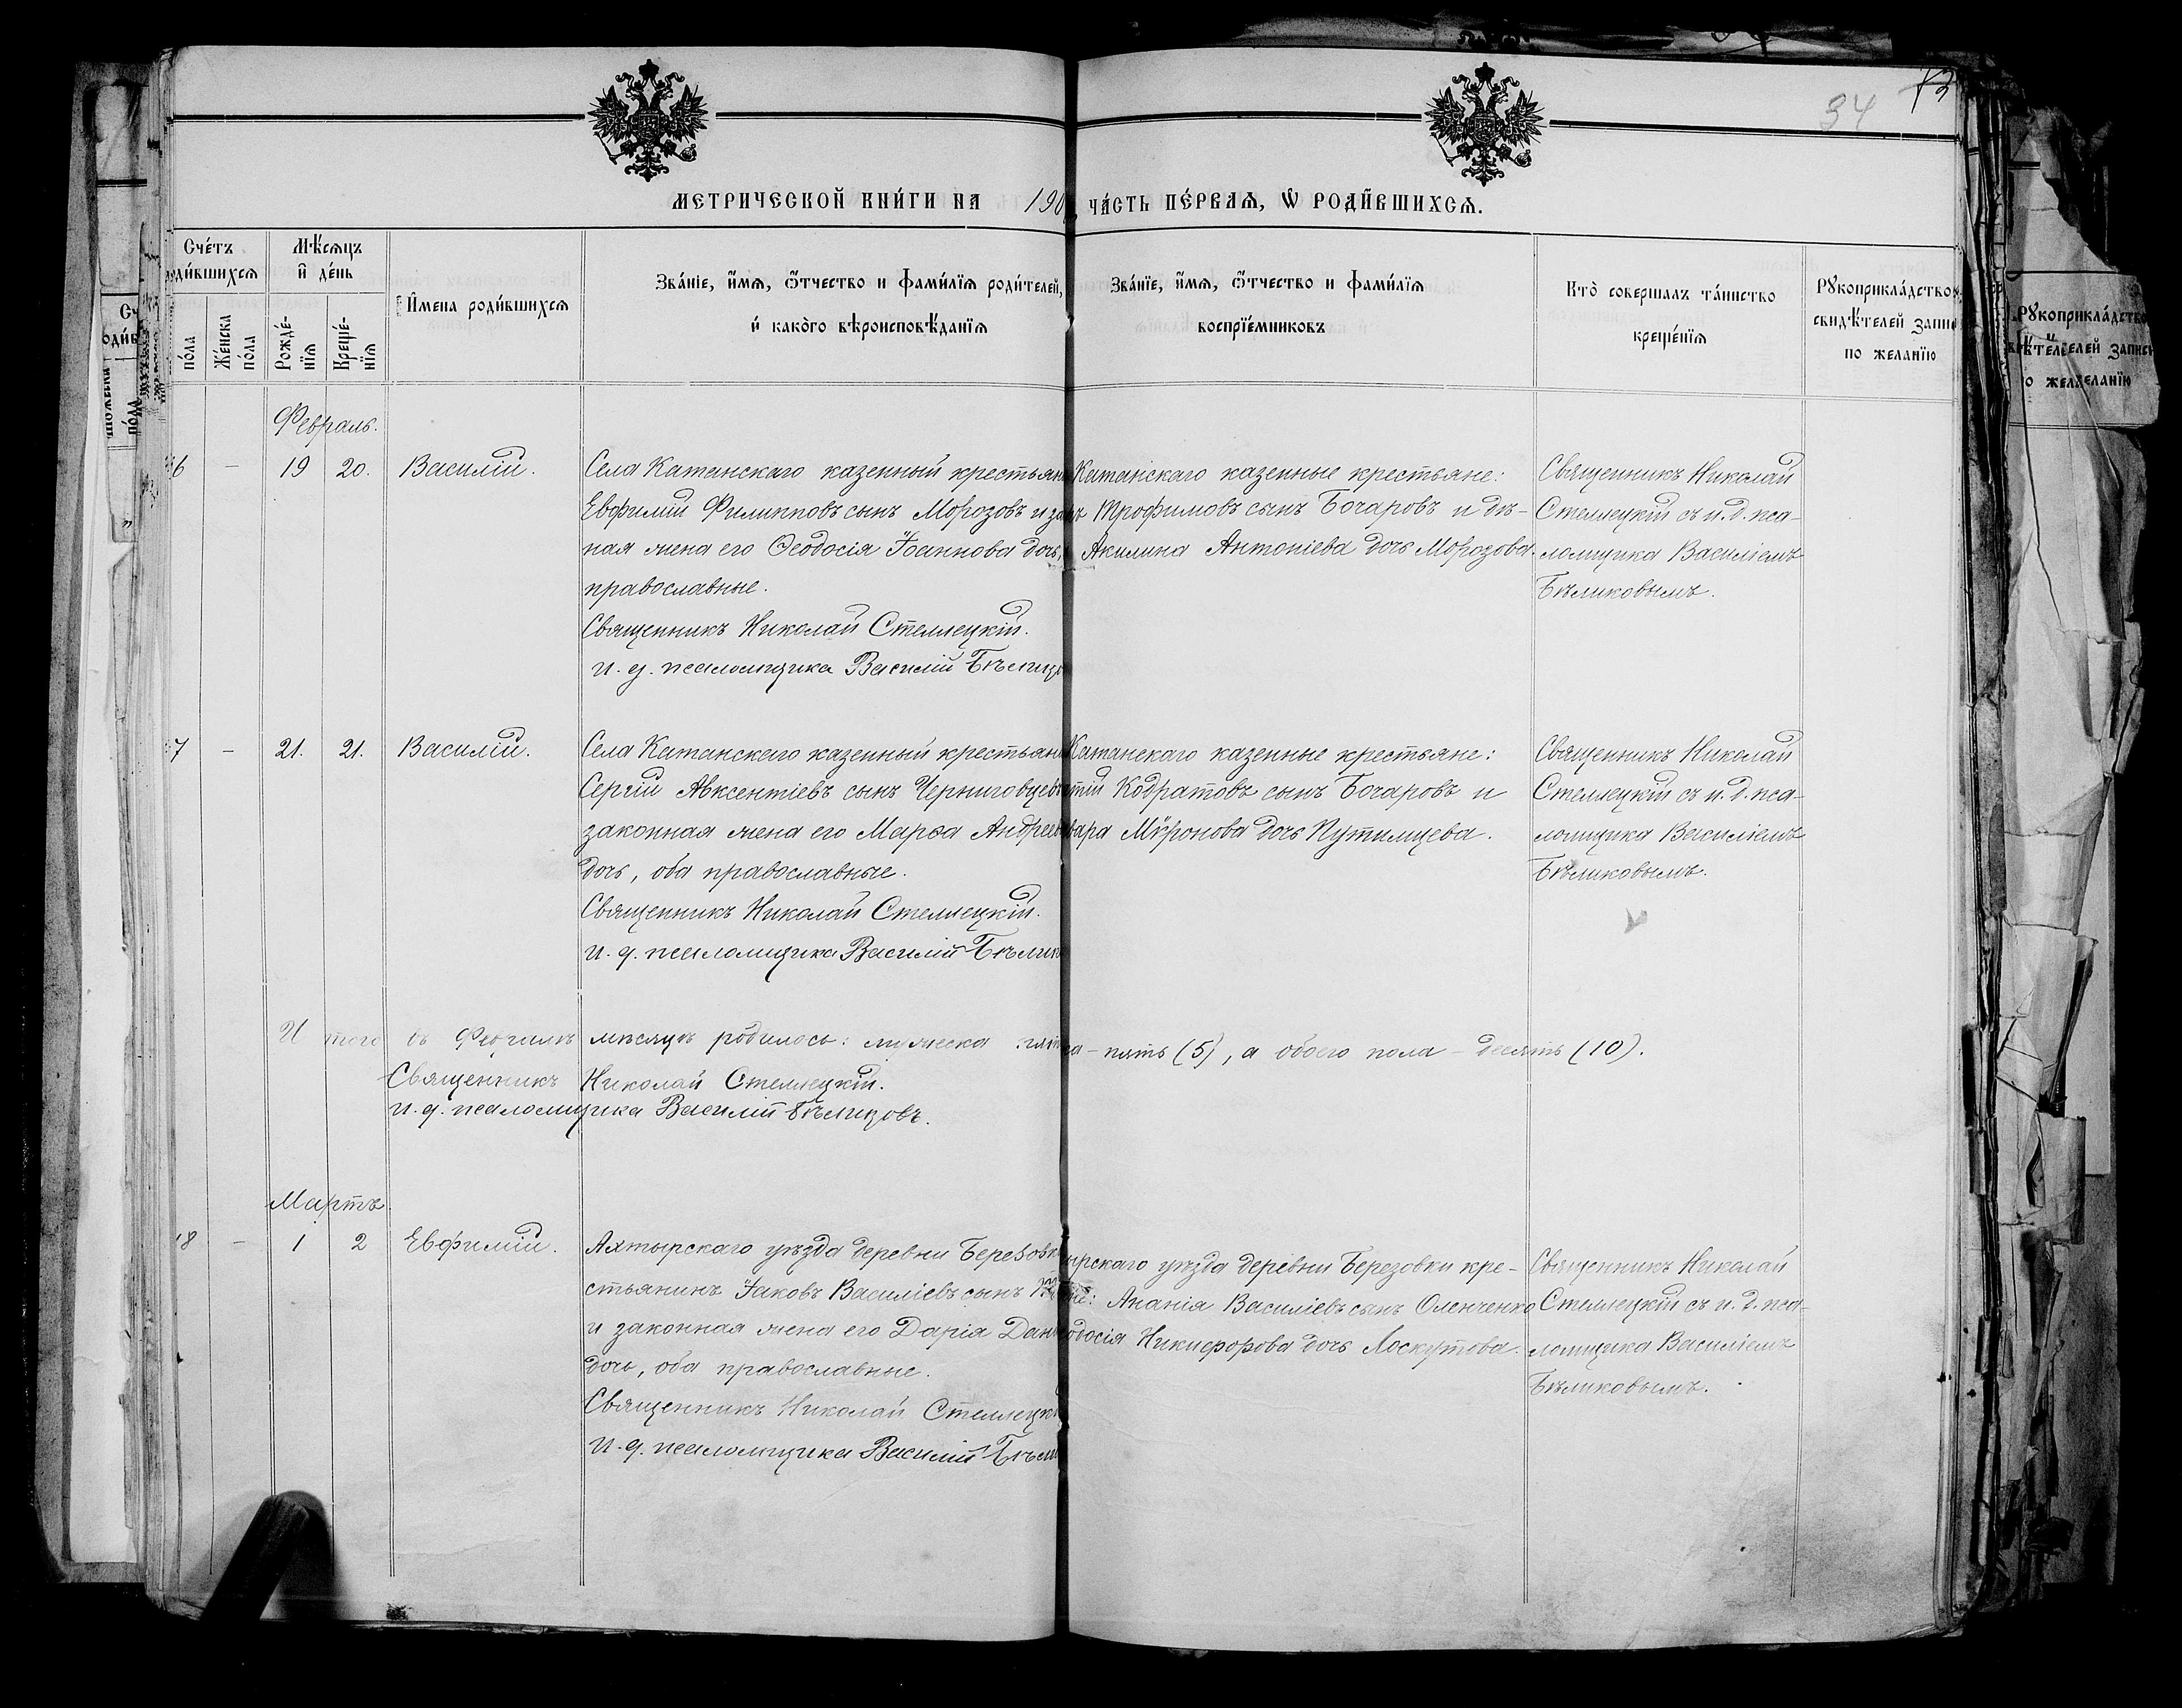 34
МЕТРИЧЕСКОЙ КНИ́ГИ НА 190
ЧА́СТЬ ПЕ́РВАѦ, Ѡ РОДИ́ВШИХСѦ.
Сче́тъ
роди́вшихсѧ
по́ла
Же́нска
по́ла
Мѣ́сѧцъ
и де́нь
Рожде́-
нїѧ
Креще́-
нїѧ
И́мена роди́вшихсѧ
Зва́нїе, и́мѧ, ѻ́тчество и фами́лїѧ роди́телей,
и҆ како́го вѣроисповѣ́данїѧ
Зва́нїе, и́мѧ, ѻ́тчество и фами́лїѧ
воспрїе́мниковъ
Кто̀ совершалъ та́инство
креще́нїѧ
Рꙋкоприкла́дство
свидѣ́телей запи
по желанїю
Февраль.
6 – 19 20. Василій.
Села Катанскаго казенный крестьян
Евфимій Филипповъ сынъ Морозовъ и за
ная жена его Ѳеодосія Іоаннова дочь,
православные.
Священникъ Николай Стеллецкій.
и. д. псаломщика Василій Бѣлик
Катанскаго казенные крестьяне:
ъ Трофимовъ сынъ Бочаровъ и дѣ-
Акилина Антоніева дочь Морозова.
Священникъ Николай
Стеллецкій съ и. д. пса-
ломщика Василіемъ
Бѣликовымъ.
7 – 21. 21. Василій.
Села Катанскаго казенный крестьян
Сергій Авксентіевъ сынъ Черниговцевъ
законная жена его Марѳа Андреев
дочь, оба православные.
Священникъ Николай Стеллецкій.
и. д. псаломщика Василій Бѣлик
Катанскаго казенные крестьяне:
тій Кодратовъ сынъ Бочаровъ и
вара Мѵронова дочь Путилицева.
Священникъ Николай
Стеллецкій съ и. д. пса-
ломщика Василіемъ
Бѣликовымъ.
Итого въ Февралѣ мѣсяцѣ родилось: мужеска пят
а – пять (5), а обоего пола – десять (10).
Священникъ Николай Стеллецкій.
и. д. псаломщика Василій Бѣликовъ.
Мартъ
18 – 1 2 Евфимій.
Ахтырскаго уѣзда деревни Березовк
стьянинъ Іаковъ Василіевъ сынъ
и законная жена его Дарія Дан
дочь, оба православные.
Священникъ Николай Стеллецк
и. д. псаломщика Василій Бѣли
ырскаго уѣзда деревни Березовки кре-
не: Ананія Василіевъ сынъ Оленченко
одосія Никифорова дочь Лоскутова.
Священникъ Николай
Стеллецкій съ и. д. пса-
ломщика Василіемъ
Бѣликовымъ.